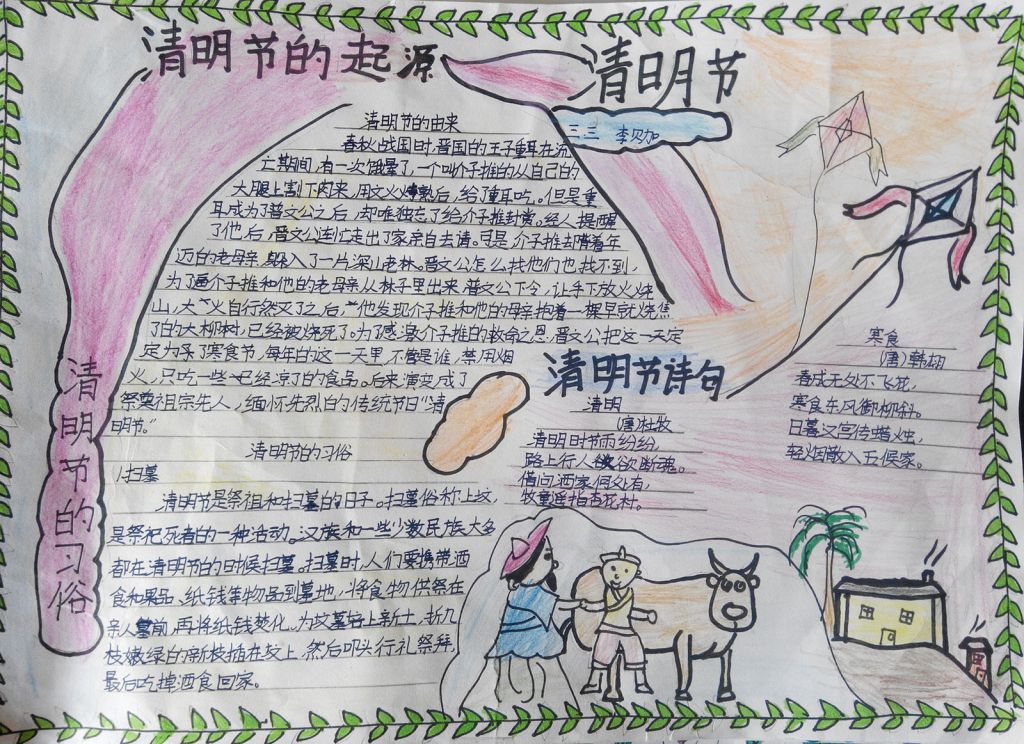 清明节的起源
清明节
三三 李贝加
清明节的由来
春秋战国时,晋国的王子重耳在流
亡期间,有一次饿晕了,一个叫介子推的从自己的
大腿上割下肉来,用文火烤熟后,给了重耳吃。但是重
耳成为了晋文公之后,却唯独忘了给介子推封赏。经人提醒
了他后,晋文公连忙走出了家亲自去请。可是介子推去背着年
迈的老母亲躲入了一片深山老林。晋文公怎么找他们也找不到,
为了逼介子推和他的老母亲从林子里出来晋文公下令,让手下放火烧
山,大火自行熄灭了之后,他发现介子推和他的母亲抱着一棵早就烧焦
了的大柳树,已经被烧死了。为了感激介子推的救命之恩,晋文公把这一天定
定为了寒食节,每年的这一天里,不管是谁,禁用烟
火,只吃一些已经凉了的食品。后来演变成了
祭奠祖宗先人,缅怀先烈的传统节日“清
明节。”
清明节的习俗
1.扫墓
清明节是祭祖和扫墓的日子。扫墓俗称上坟,
是祭祀死者的一种活动。汉族和一些少数民族大多
都在清明节的时候扫墓。扫墓时,人们要携带酒
食和果品、纸钱等物品到墓地,将食物供祭在
亲人墓前,再将纸钱焚化,为坟墓培上新土,折几
枝嫩绿的新枝插在坟上,然后叩头行礼祭拜,
最后吃掉酒食回家。
清明节的习俗
清明节诗句
清明
(唐)杜牧
清明时节雨纷纷,
路上行人欲欲断魂。
借问酒家何处有,
牧童遥指杏花村。
寒食
(唐)韩翃
春城无处不飞花,
寒食东风御柳斜。
日暮汉宫传蜡烛,
轻烟散入五侯家。